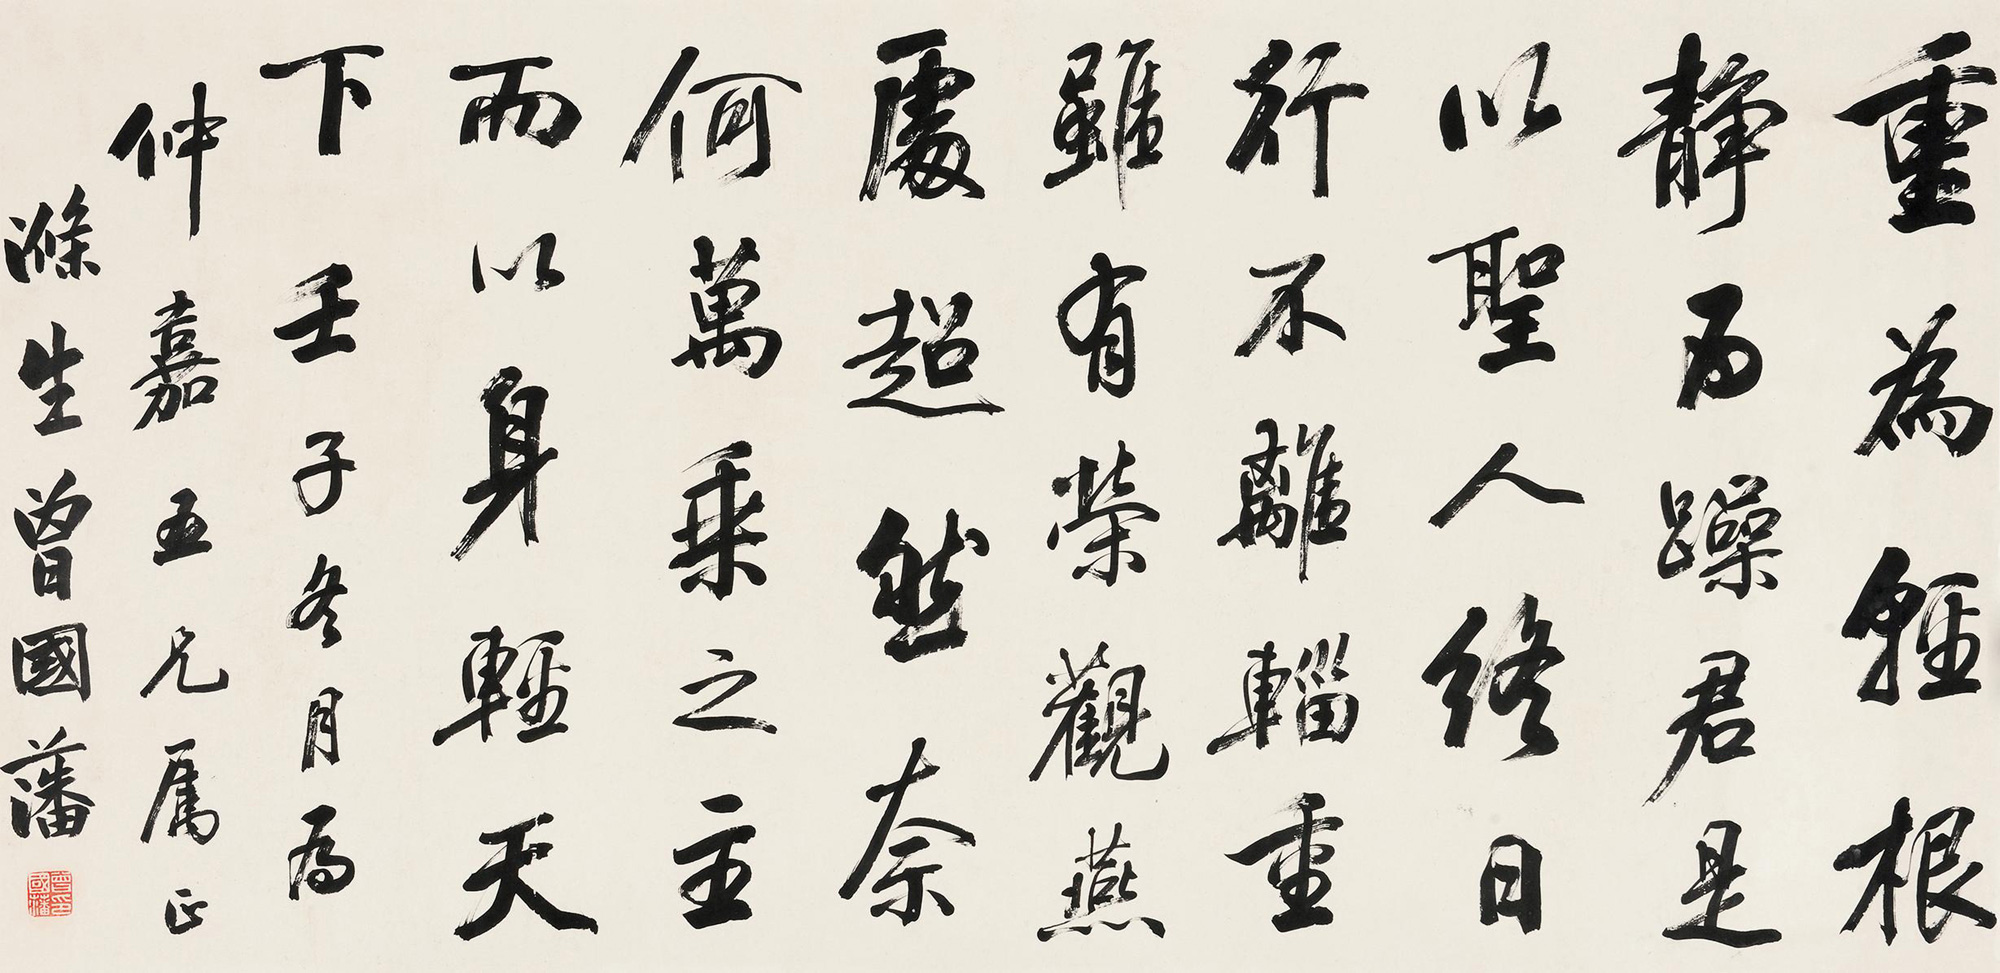 重為輕根
靜為躁君是
以聖人終日
行不離輜重
雖有榮觀燕
處超然奈
何萬乘之主
而以身輕天
下壬子冬月為
仲嘉五兄属正
滌生曾國藩
曾印國藩